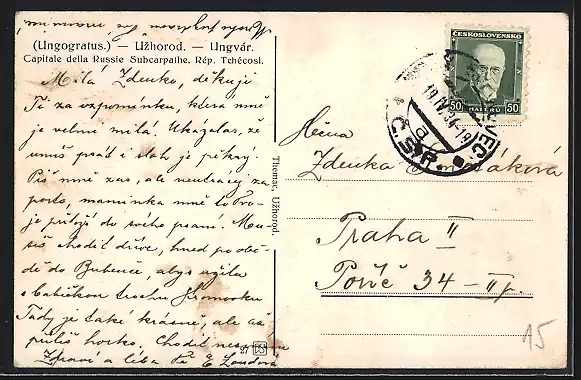 (Ungogratus.) — Užhorod. — Ungvár.
Capitale della Russie Subcarpathe. Rép. Tchécosl.
Milá Zdenko, děkuji
Ti za vzpomínku, která mně
je velmi milá. Ukázalas, že
umíš psát i sloh je pěkný.
Piš mně zas, ale neutrácej za
porto, maminka mně to
je připojí do svého psaní.
chodit dříve, hned po obě-
dě do Bubenče, abys užila
s babičkou trochu
Tady je také krásně, ale až
příliš horko. Chodil
Zdraví a líbá Tě E
Themat, Užhorod.
27
ČESKOSLOVENSKO
50 HALÉŘŮ 50
19.IV.34-19
a
Č.S.P.
Zdenka
Praha II
Poříč 34 – II p.
15